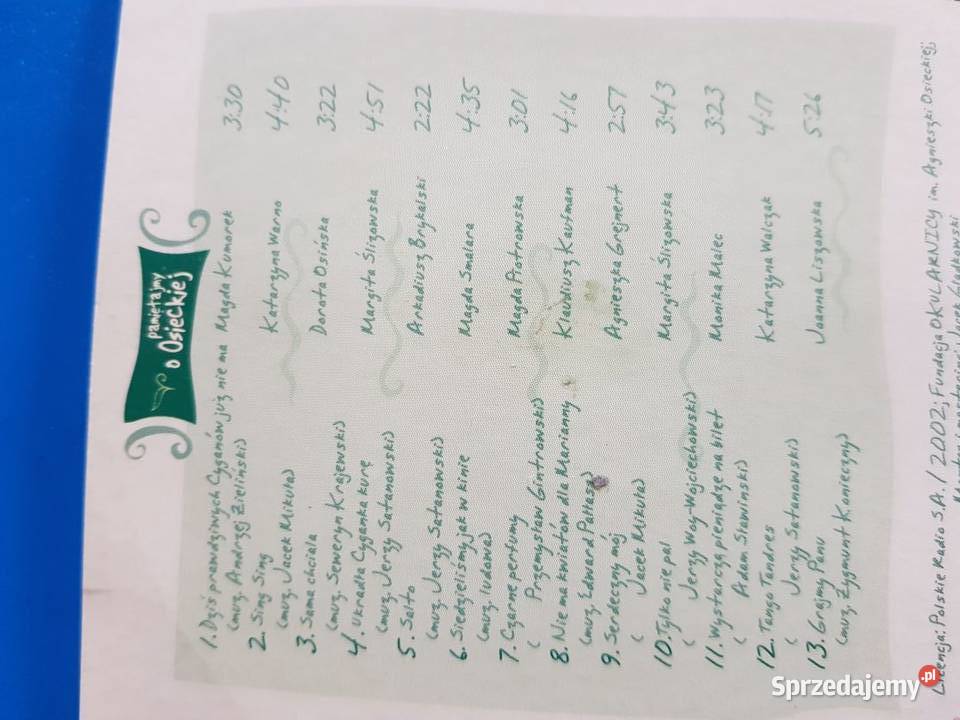 pamiętajmy
o Osieckiej
1. Dziś prawdziwych Cyganów już nie ma Magda Kumorek 3:30
(muz. Andrzej Zieliński)
2. Sing Sing Katarzyna Warno 4:40
(muz. Jacek Mikuła)
3. Sama chciała Dorota Osińska 3:22
(muz. Seweryn Krajewski)
4. Ukradła Cyganka kurę Margita Ślizowska 4:51
(muz. Jerzy Satanowski)
5. Salto Arkadiusz Brykalski 2:22
(muz. Jerzy Satanowski)
6. Siedzieliśmy jak w kinie Magda Smalara 4:35
(muz. ludowa)
7. Czarne perfumy Magda Piotrowska 3:01
( Przemysław Gintrowski)
8. Nie ma kwiatów dla Marianny Klaudiusz Kaufman 4:16
(muz. Edward Pałłasz)
9. Serdeczny mój Agnieszka Grejnert 2:57
( Jacek Mikuła)
10. Tylko nie pal Margita Ślizowska 3:43
( Jerzy Woy-Wojciechowski)
11. Wystarczą pieniądze na bilet Monika Malec 3:23
( Adam Sławiński)
12. Tango Tandres Katarzyna Walczak 4:17
( Jerzy Satanowski)
13. Grajmy Panu Joanna Liszowska 5:26
(muz. Zygmunt Konieczny)
Licencja: Polskie Radio S.A. / 2002; Fundacja OKULARNICY im. Agnieszki Osieckiej;
Jacek Gładkowski
Sprzedajemy.pl